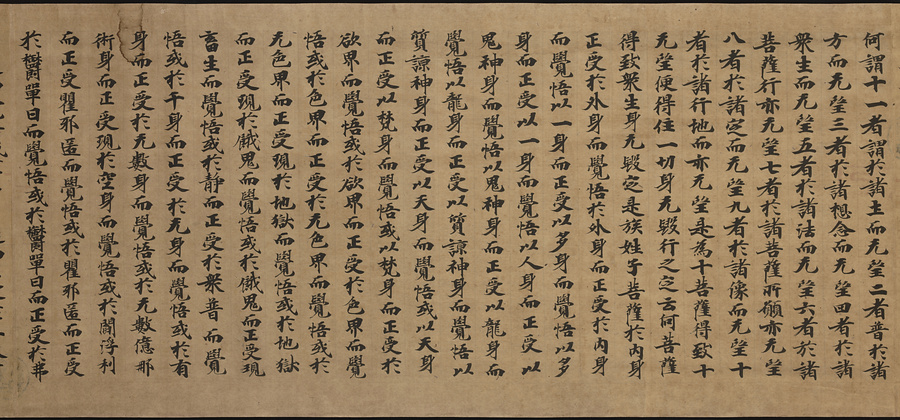 何謂十一者謂於諸土而无望二者普於諸
方而无望三者於諸想念而无望四者於諸
衆生而无望五者於諸法而无望六者於諸
菩薩行亦无望七者於諸菩薩所願亦无望
八者於諸定而无望九者於諸像而无望十
者於諸行地而亦无望是為十菩薩得致十
无望便得住一切身无數行之定云何菩薩
得致衆生身无數定是族姓子菩薩於內身
正受於外身而覺悟於外身而正受於內身
而覺悟以一身而正受以多身而覺悟以多
身而正受以一身而覺悟以人身而正受以
鬼神身而覺悟以鬼神身而正受以龍身而
覺悟以龍身而正受以質諒神身而覺悟以
質諒神身而正受以天身而覺悟或以天身
而正受以梵身而覺悟或以梵身而正受於
欲界而覺悟或於欲界而正受於色界而覺
悟或於色界而正受於无色界而覺悟或於
无色界而正受現於地獄而覺悟或於地獄
而正受現於餓鬼而覺悟或於餓鬼而正受現
畜生而覺悟或於靜而正受於衆普而覺
悟或於千身而正受於无身而覺悟或於有
身而正受於无數身而覺悟或於无數億那
術身而正受現於空身而覺悟或於閻浮利
而正受瞿邪匿而覺悟或於瞿邪匿而正受
於欝單曰而覺悟或於欝單曰而正受於弗